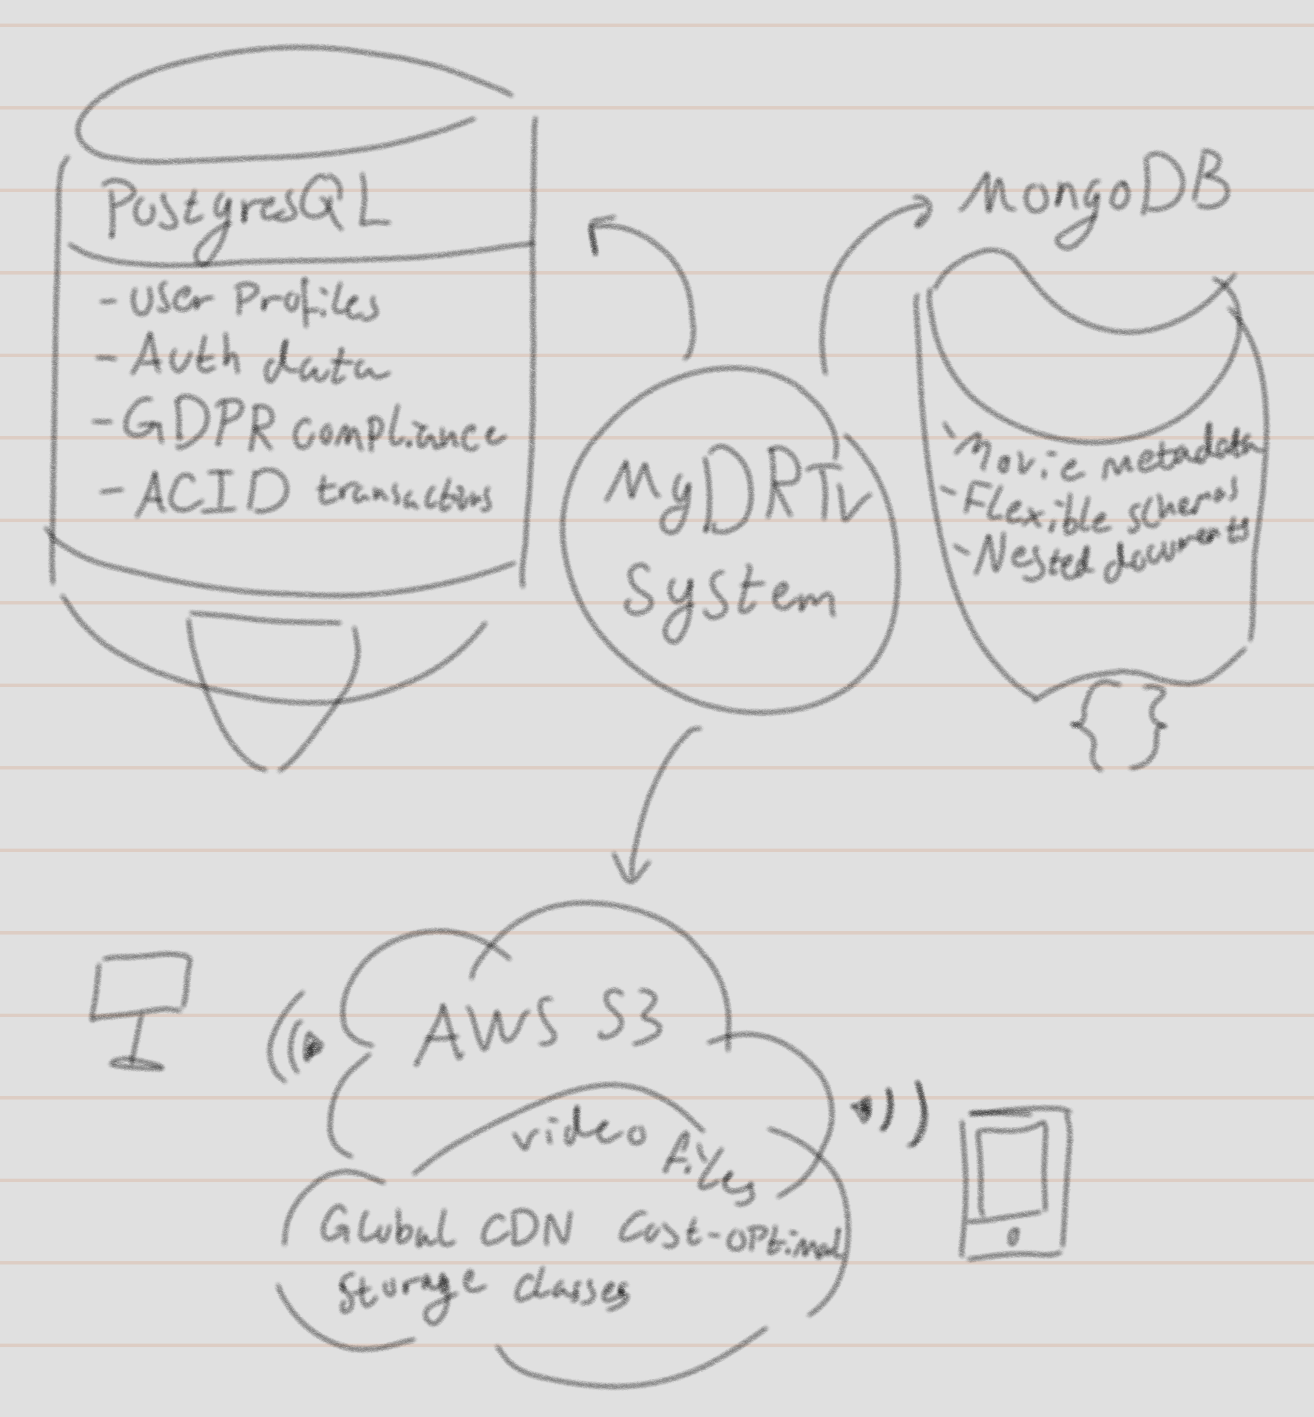 PostgresQL
- User Profiles
- Auth data
- GDPR compliance
- ACID transactions
MyDRTV
System
MongoDB
- Movie metadata
- Flexible schemas
- Nested documents
{ }
AWS S3
video files
Global CDN Cost-optimal
storage classes